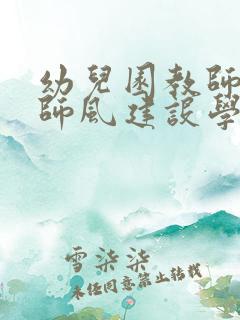 幼兒園教師
師風建設學
雪柒柒
未经同意禁止转载